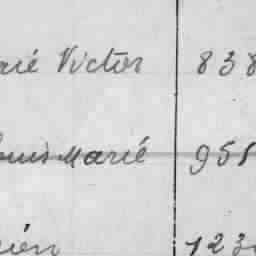 rié Victor 838
ouis Marié 951
rién 123